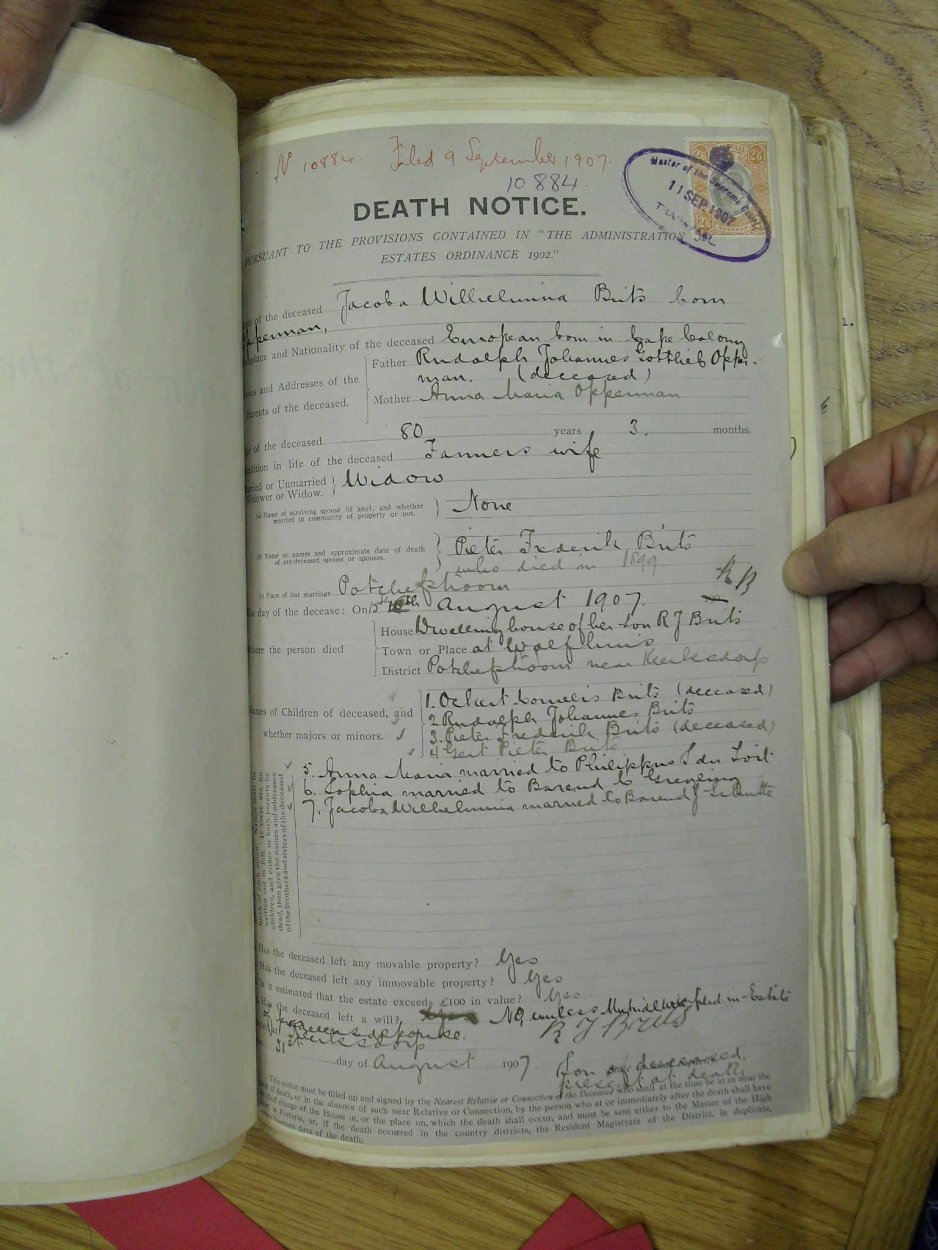 No 10884. Filed 9 September 1907.
10884.
Master of the Supreme Court
11 SEP 1907
TRANSVAAL
DEATH NOTICE.
PURSUANT TO THE PROVISIONS CONTAINED IN "THE ADMINISTRATION
ESTATES ORDINANCE 1902."
of the deceased Jacoba Wilhelmina Brits born
pperman,
place and Nationality of the deceased European born in Cape Colony
Father Rudolph Johannes Gottlieb Opper-
man. (deceased)
es and Addresses of the
Parents of the deceased.
Mother Anna Maria Opperman
of the deceased 80 years 3. months.
dition in life of the deceased Farmers wife
ried or Unmarried
Widower or Widow. Widow
(a) Name of surviving spouse (if any), and whether
married in community of property or not. None
(b) Name or names and approximate date of death
of pre-deceased spouse or spouses. Pieter Frederik Brits
who died in 1899
(c) Place of last marriage Potchefstroom
day of the decease: On 15th August 1907.
House Dwelling house of her son R J Brits
Where the person died Town or Place at
District Potchefstroom near Klerksdorp
1. Ockert Cornelis Brits (deceased)
ames of Children of deceased, and 2 Rudolph Johannes Brits
whether majors or minors. 3. Pieter Frederik Brits (deceased)
4 Gert Pieter Brits
5. Anna Maria married to Philippus J du Toit
6. Sophia married to Barend C Greyling
7. Jacoba Wilhelmina married to Barend J
written out in full. If there are no
children, and either or both parents be
dead, then give the names and addresses
of the brothers and sisters of the deceased
Has the deceased left any movable property? Yes
Has the deceased left any immovable property? Yes
Is it estimated that the estate exceeds £100 in value? Yes
Has the deceased left a will? No, unless Mutual will filed in Estate
of
R J Brits
Klerksdorp
31st day of August 1907
Son of deceased.
present at death
This notice must be filled up and signed by the Nearest Relative or Connection of the Deceased who shall at the time be at or near the
of death, or in the absence of such near Relative or Connection, by the person who at or immediately after the death shall have
charge of the House in, or the place on, which the death shall occur, and must be sent either to the Master of the High
Pretoria, or, if the death occurred in the country districts, the Resident Magistrate of the District, in duplicate,
days of the death.